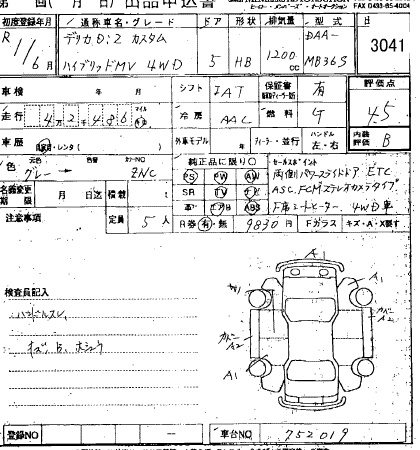 第 回( 月 日) 出品申込書
FAX 0493-65-4004
初度登録年月 通称車名・グレード ドア 形状 排気量 型式
R 11/6月 デリカD:2 カスタム ハイブリッドMV 4WD 5 HB 1200cc DAA-MB36S 3041
車検 年 月 シフト IAT 保証書 有 評価点
走行 42486 マイル 冷房 AAC 燃料 ガ 4.5
車歴 自家用・レンタ( ) 外車モデル 年 ディーラー・並行 ハンドル 左・右 内装評価 B
色 元色 グレー → 色替 カラーNO ZNC
純正品に限り○ セールスポイント
PS PW AW 両側パワースライドドア ETC
名義変更期限 月 日 積載 SR TV ナビ ASC.FCMステレオカメラタイプ
革 エアB ABS F席シートヒーター 4WD車
注意事項 定員 5人 R券 有・無 9830円 Fガラス キズ・A・X要す
検査員記入
ハンドルスレ
キズ, B, ホシュウ
A1
A1
カバー A2
カバー A2
A1
登録NO 車台NO 752019